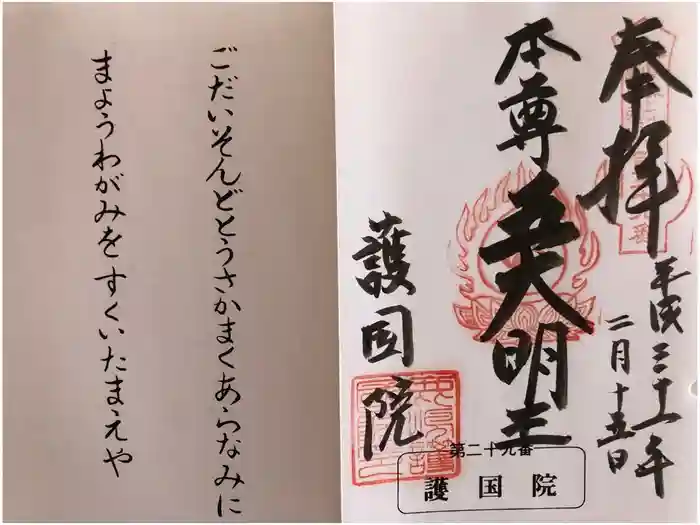 奉拝
平成三十一年
二月十五日
本尊
五大明王
護国院
第二十九番
護国院
ごだいそんどとうさかまくあらなみに
まようわがみをすくいたまえや